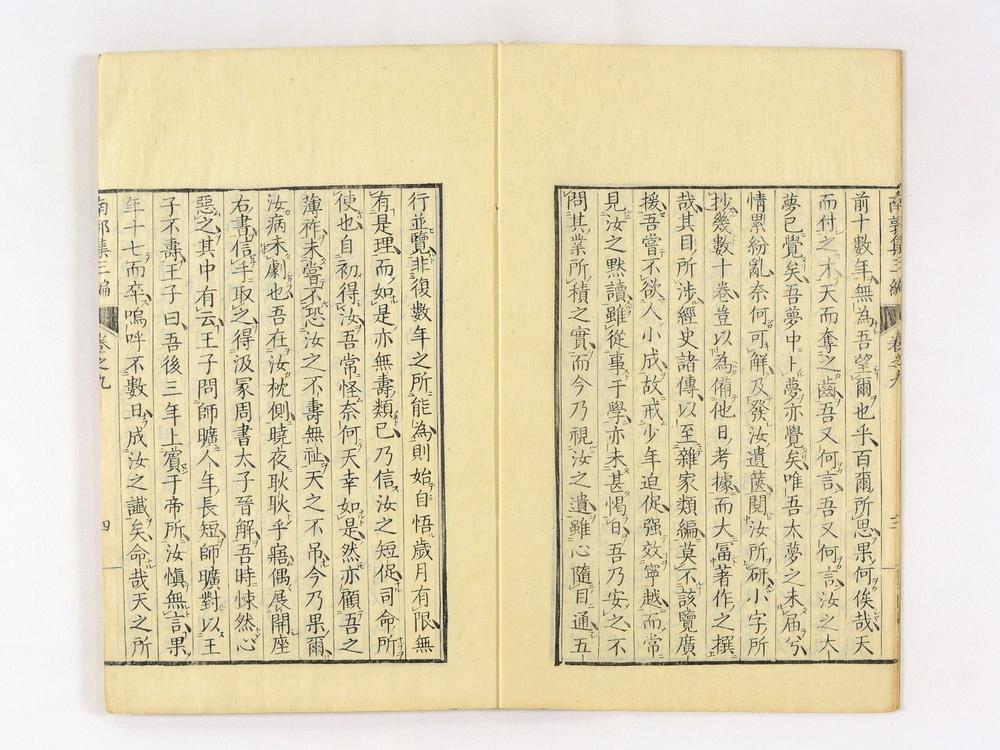 前十數年無為吾望爾也乎百爾所思果何俟哉天
而付之才天而奪之齒吾又何言吾又何言汝之大
夢已覺矣吾夢中卜夢亦覺矣唯吾太夢之未届兮
情累紛亂奈何可解及發汝遺篋閱汝所研小字所
抄幾數十卷豈以為備他日考據而大富著作之撰
哉其目所涉經史諸傳以至雜家類編莫不該覽廣
援吾嘗不欲人小成故戒少年迫促强效寧越而常
見汝之默讀雖從事于學亦未甚愒日吾乃安之不
問其業所積之實而今乃視汝之遺雖心隨目通五
行並覽非復數年之所能為則始自悟歲月有限無
有是理而如是亦無壽類已乃信汝之短促司命所
使也自初得汝吾常怪奈何天幸如是然亦顧吾之
薄祚未嘗不恐汝之不壽無祉天之不吊今乃果爾
汝病未劇也吾在汝枕側曉夜耿耿乎寤偶展開座
右書信手取之得汲冢周書太子晉解吾時悚然心
惡之其中有云王子問師曠人年長短師曠對以王
子不壽王子曰吾後三年上賓于帝所汝愼無言果
年十七而卒嗚呼不數日成汝之讖矣命哉天之所
南郭集三編 卷之九 四